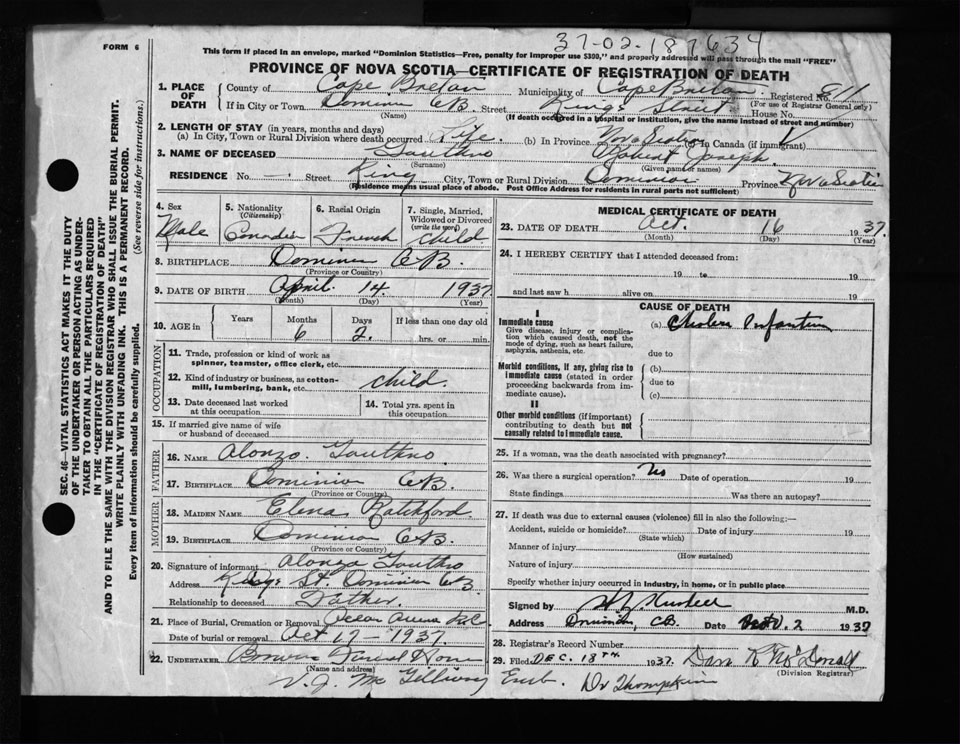 FORM 6
37-02-187634
This form if placed in an envelope, marked "Dominion Statistics—Free, penalty for improper use $300," and properly addressed will pass through the mail "FREE"
PROVINCE OF NOVA SCOTIA—CERTIFICATE OF REGISTRATION OF DEATH
1. PLACE OF DEATH
County of Cape Breton Municipality of Cape Breton Registered No.
(For use of Registrar General only)
If in City or Town Dominion CB. Street Kings Street House No.
(Name) (If death occurred in a hospital or institution, give the name instead of street and number)
2. LENGTH OF STAY (in years, months and days)
(a) In City, Town or Rural Division where death occurred Life (b) In Province Nova Scotia (c) In Canada (if immigrant)
3. NAME OF DECEASED Robert Joseph
(Surname) (Given name or names)
RESIDENCE No. — Street King City, Town or Rural Division Dominion Province Nova Scotia
(Residence means usual place of abode. Post Office Address for residents in rural parts not sufficient)
4. Sex Male
5. Nationality (Citizenship) Canadian
6. Racial Origin French
7. Single, Married, Widowed or Divorced (write the word) child
8. BIRTHPLACE Dominion CB.
(Province or Country)
9. DATE OF BIRTH April 14 1937
(Month) (Day) (Year)
10. AGE in Years Months 6 Days 2. If less than one day old
hrs. or min.
OCCUPATION
11. Trade, profession or kind of work as spinner, teamster, office clerk, etc.
12. Kind of industry or business, as cotton-mill, lumbering, bank, etc. child.
13. Date deceased last worked at this occupation
14. Total yrs. spent in this occupation
15. If married give name of wife or husband of deceased
FATHER
16. NAME Alonzo
17. BIRTHPLACE Dominion CB.
(Province or Country)
MOTHER
18. MAIDEN NAME Elena Ratchford
19. BIRTHPLACE Dominion CB.
(Province or Country)
20. Signature of informant Alonzo
Address Kings St. Dominion CB
Relationship to deceased Father.
21. Place of Burial, Cremation or Removal
Date of burial or removal Oct 17 - 1937.
22. UNDERTAKER Funeral Home
(Name and address)
V. J. McGillivary
MEDICAL CERTIFICATE OF DEATH
23. DATE OF DEATH Oct. 16 1937.
(Month) (Day) (Year)
24. I HEREBY CERTIFY that I attended deceased from:
19 to 19
and last saw h alive on 19
CAUSE OF DEATH
I
Immediate cause (a) Cholera Infantum
Give disease, injury or complication which caused death, not the mode of dying, such as heart failure, asphyxia, asthenia, etc.
due to
Morbid conditions, if any, giving rise to immediate cause (stated in order proceeding backwards from immediate cause).
(b)
due to
(c)
II
Other morbid conditions (if important) contributing to death but not causally related to immediate cause.
25. If a woman, was the death associated with pregnancy?
26. Was there a surgical operation? No Date of operation 19
State findings Was there an autopsy?
27. If death was due to external causes (violence) fill in also the following:—
Accident, suicide or homicide? Date of injury 19
(State which)
Manner of injury
(How sustained)
Nature of injury
Specify whether injury occurred in industry, in home, or in public place
Signed by M.D.
Address Dominion, CB Date Nov. 2 1937
28. Registrar's Record Number
29. Filed DEC. 18TH 1937. Dan R McDonald
(Division Registrar)
Dr Thompkins
SEC. 46—VITAL STATISTICS ACT MAKES IT THE DUTY
OF THE UNDERTAKER OR PERSON ACTING AS UNDER-
TAKER TO OBTAIN ALL THE PARTICULARS REQUIRED
IN THE "CERTIFICATE OF REGISTRATION OF DEATH"
AND TO FILE THE SAME WITH THE DIVISION REGISTRAR WHO SHALL ISSUE THE BURIAL PERMIT.
WRITE PLAINLY WITH UNFADING INK. THIS IS A PERMANENT RECORD.
Every item of information should be carefully supplied. (See reverse side for instructions.)